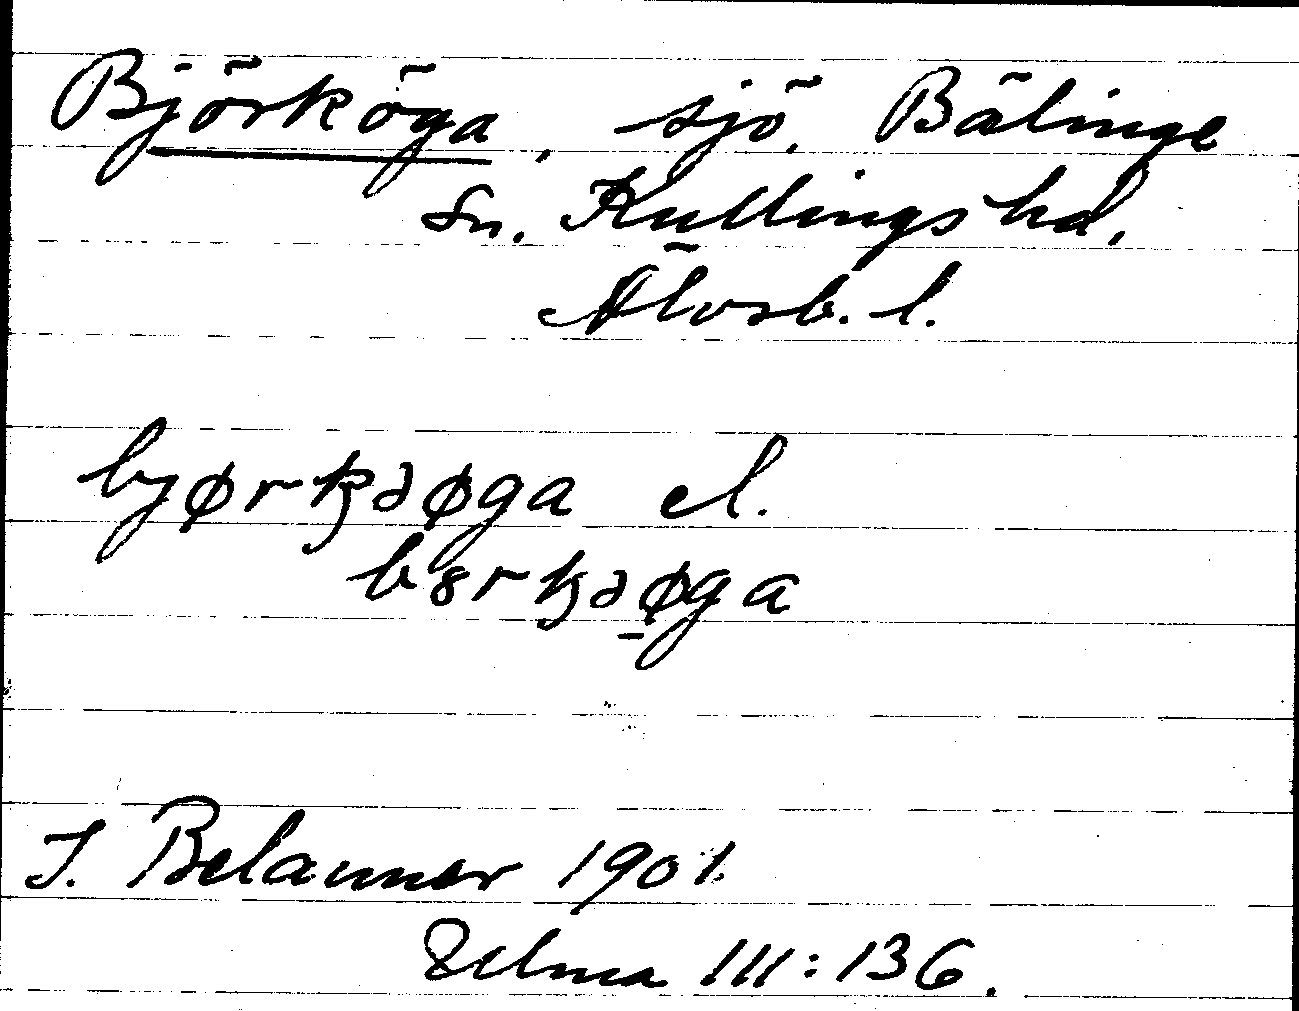 Björköga, sjö, Bälinge
sn. Kullings hd,
Älvsb. l.
bjørꞣəøga el.
b8rꞣəø̠ga
I. Belanner 1901.
Selma III:136.